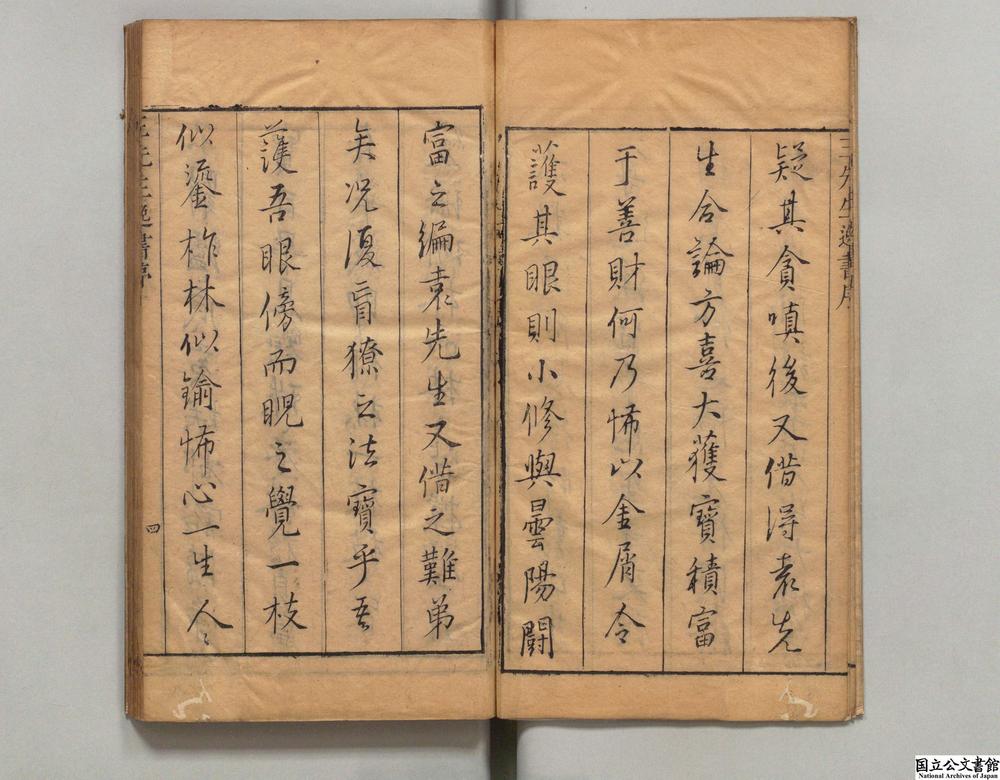 疑其貪嗔後又借得袁先
生合論方喜大獲寶積富
于善財何乃怖以金屑令
護其眼則小修與曇陽鬪
富之編袁先生又借之難弟
矣况復盲獠之法寶乎吾
護吾眼傍而睨之覺一枝
似鎏柞林似鍮怖心一生人〻
四
国立公文書館
National Archives of Japan